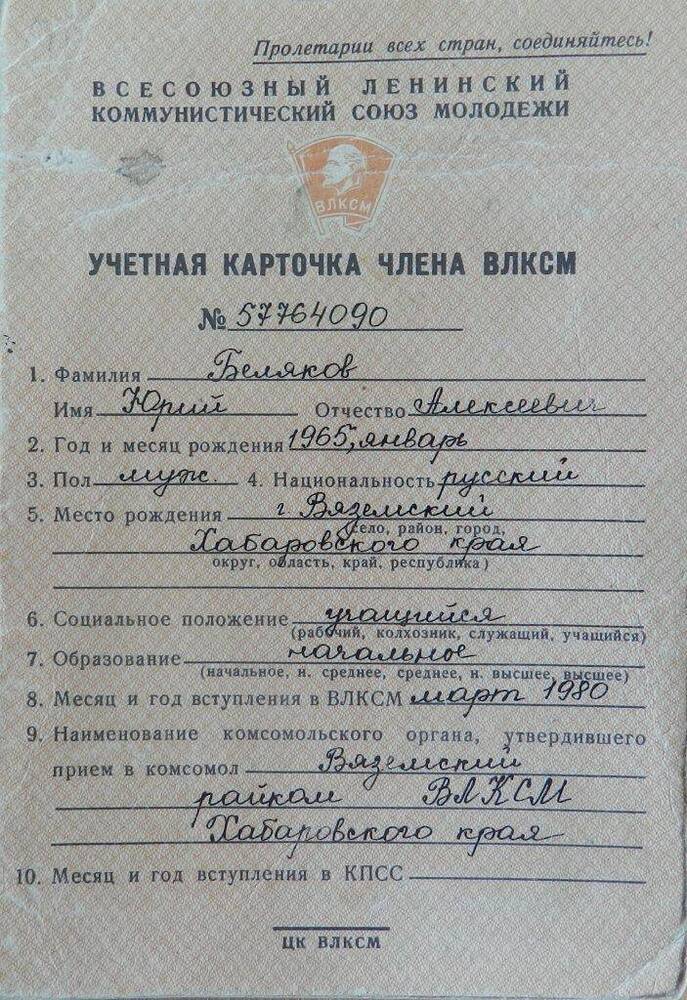 Пролетарии всех стран, соединяйтесь!
ВСЕСОЮЗНЫЙ ЛЕНИНСКИЙ
КОММУНИСТИЧЕСКИЙ СОЮЗ МОЛОДЕЖИ
ВЛКСМ
УЧЕТНАЯ КАРТОЧКА ЧЛЕНА ВЛКСМ
№ 57764090
1. Фамилия Беляков
Имя Юрий Отчество Алексеевич
2. Год и месяц рождения 1965, январь
3. Пол муж. 4. Национальность русский
5. Место рождения г Вяземский
(село, район, город,
Хабаровского края
округ, область, край, республика)
6. Социальное положение учащийся
(рабочий, колхозник, служащий, учащийся)
7. Образование начальное
(начальное, н. среднее, среднее, н. высшее, высшее)
8. Месяц и год вступления в ВЛКСМ март 1980
9. Наименование комсомольского органа, утвердившего
прием в комсомол Вяземский
райком ВЛКСМ
Хабаровского края
10. Месяц и год вступления в КПСС
ЦК ВЛКСМ